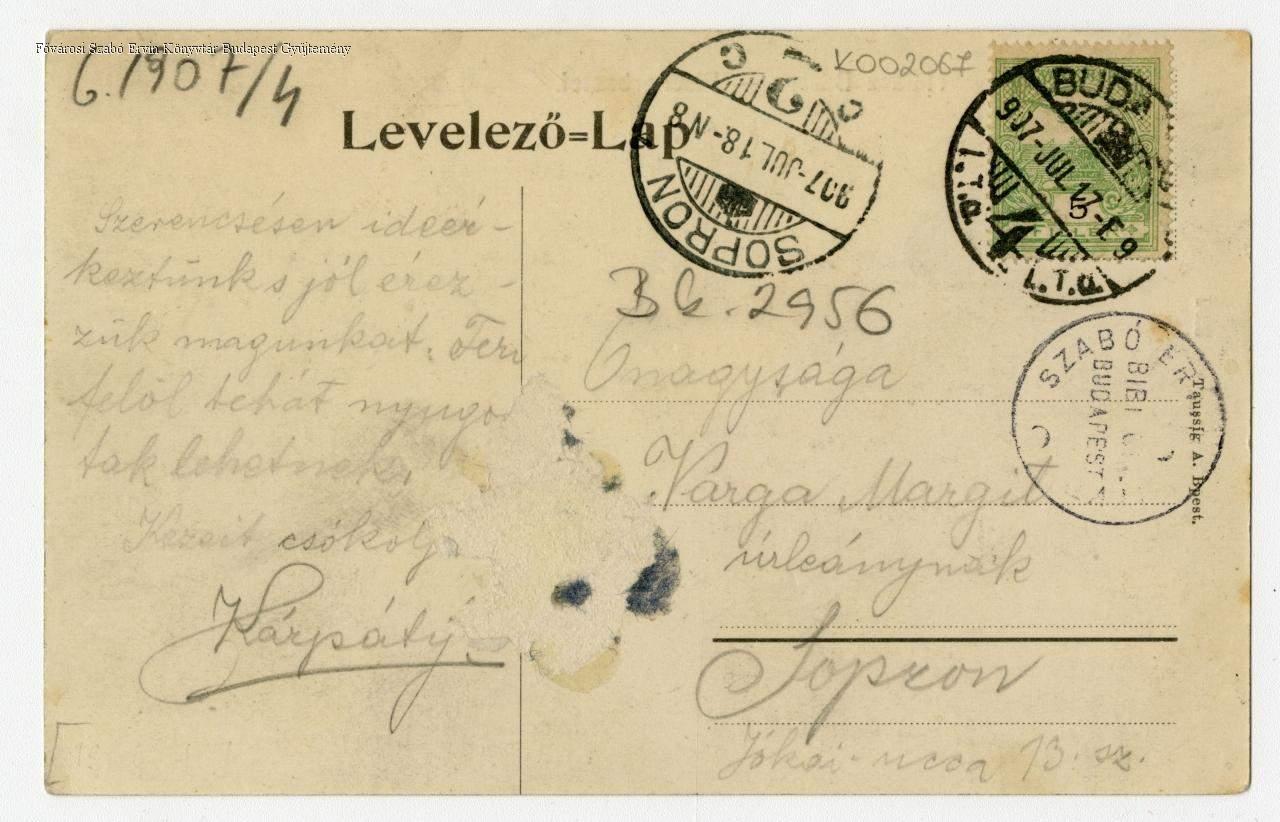 Fővárosi Szabó Ervin Könyvtár Budapest Gyűjtemény
6.1907/4
K002067
Levelező=Lap
SOPRON
907-JUL 18-N8
BUDA
907-JUL 17-E 9
P.T.1
5
Bk. 2956
SZABÓ ER
BUDAPEST
Taussig A. Bpest.
Szerencsésen ideér-
keztünk s jól érez-
zük magunkat. Feri
felől tehát nyugod
tak lehetnek.
Kezeit csókolja
Kárpáty
Őnagysága
Varga Margit
úrleánynak
Sopron
Jókai-ucca 13. sz.